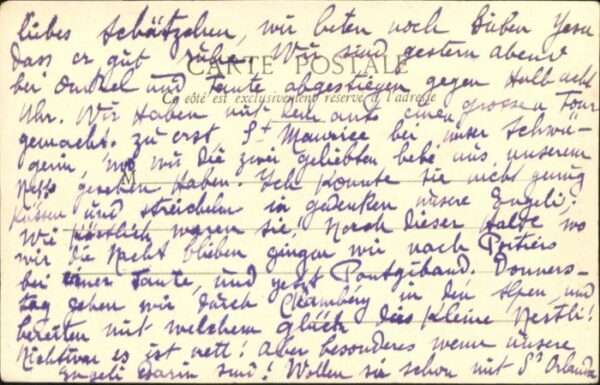 liebes Schätzchen, wir beten noch lieben Jesu
dass er gut Wir sind gestern abend
CARTE POSTALE
bei Onkel und Tante abgestiegen gegen Halb acht
Ce côté est exclusivement réservé à l'adresse
Uhr. Wir Haben mit dem auto einen grossen Tour
gemacht. zu erst St Maurice bei unser Schwä-
gerin, wo wir die zwei geliebten bebe aus unserem
M
Nest gesehen Haben. Ich konnte sie nicht genug
küssen und streicheln in gedenken unsere Engeli;
Wie köstlich waren sie! Nach dieser Halte, wo
wir die Nacht blieben gingen wir nach Poitiers
bei einer Tante, und jetzt Pontgibaud. Donners-
tag gehen wir durch Chambéry in den Alpen und
bereiten mit welchem glück das kleine Nestli!
Nichtwar es ist nett! aber besonderes wenn unsere
Engeli darin sind! Wollen sie schon mit St Orlanda